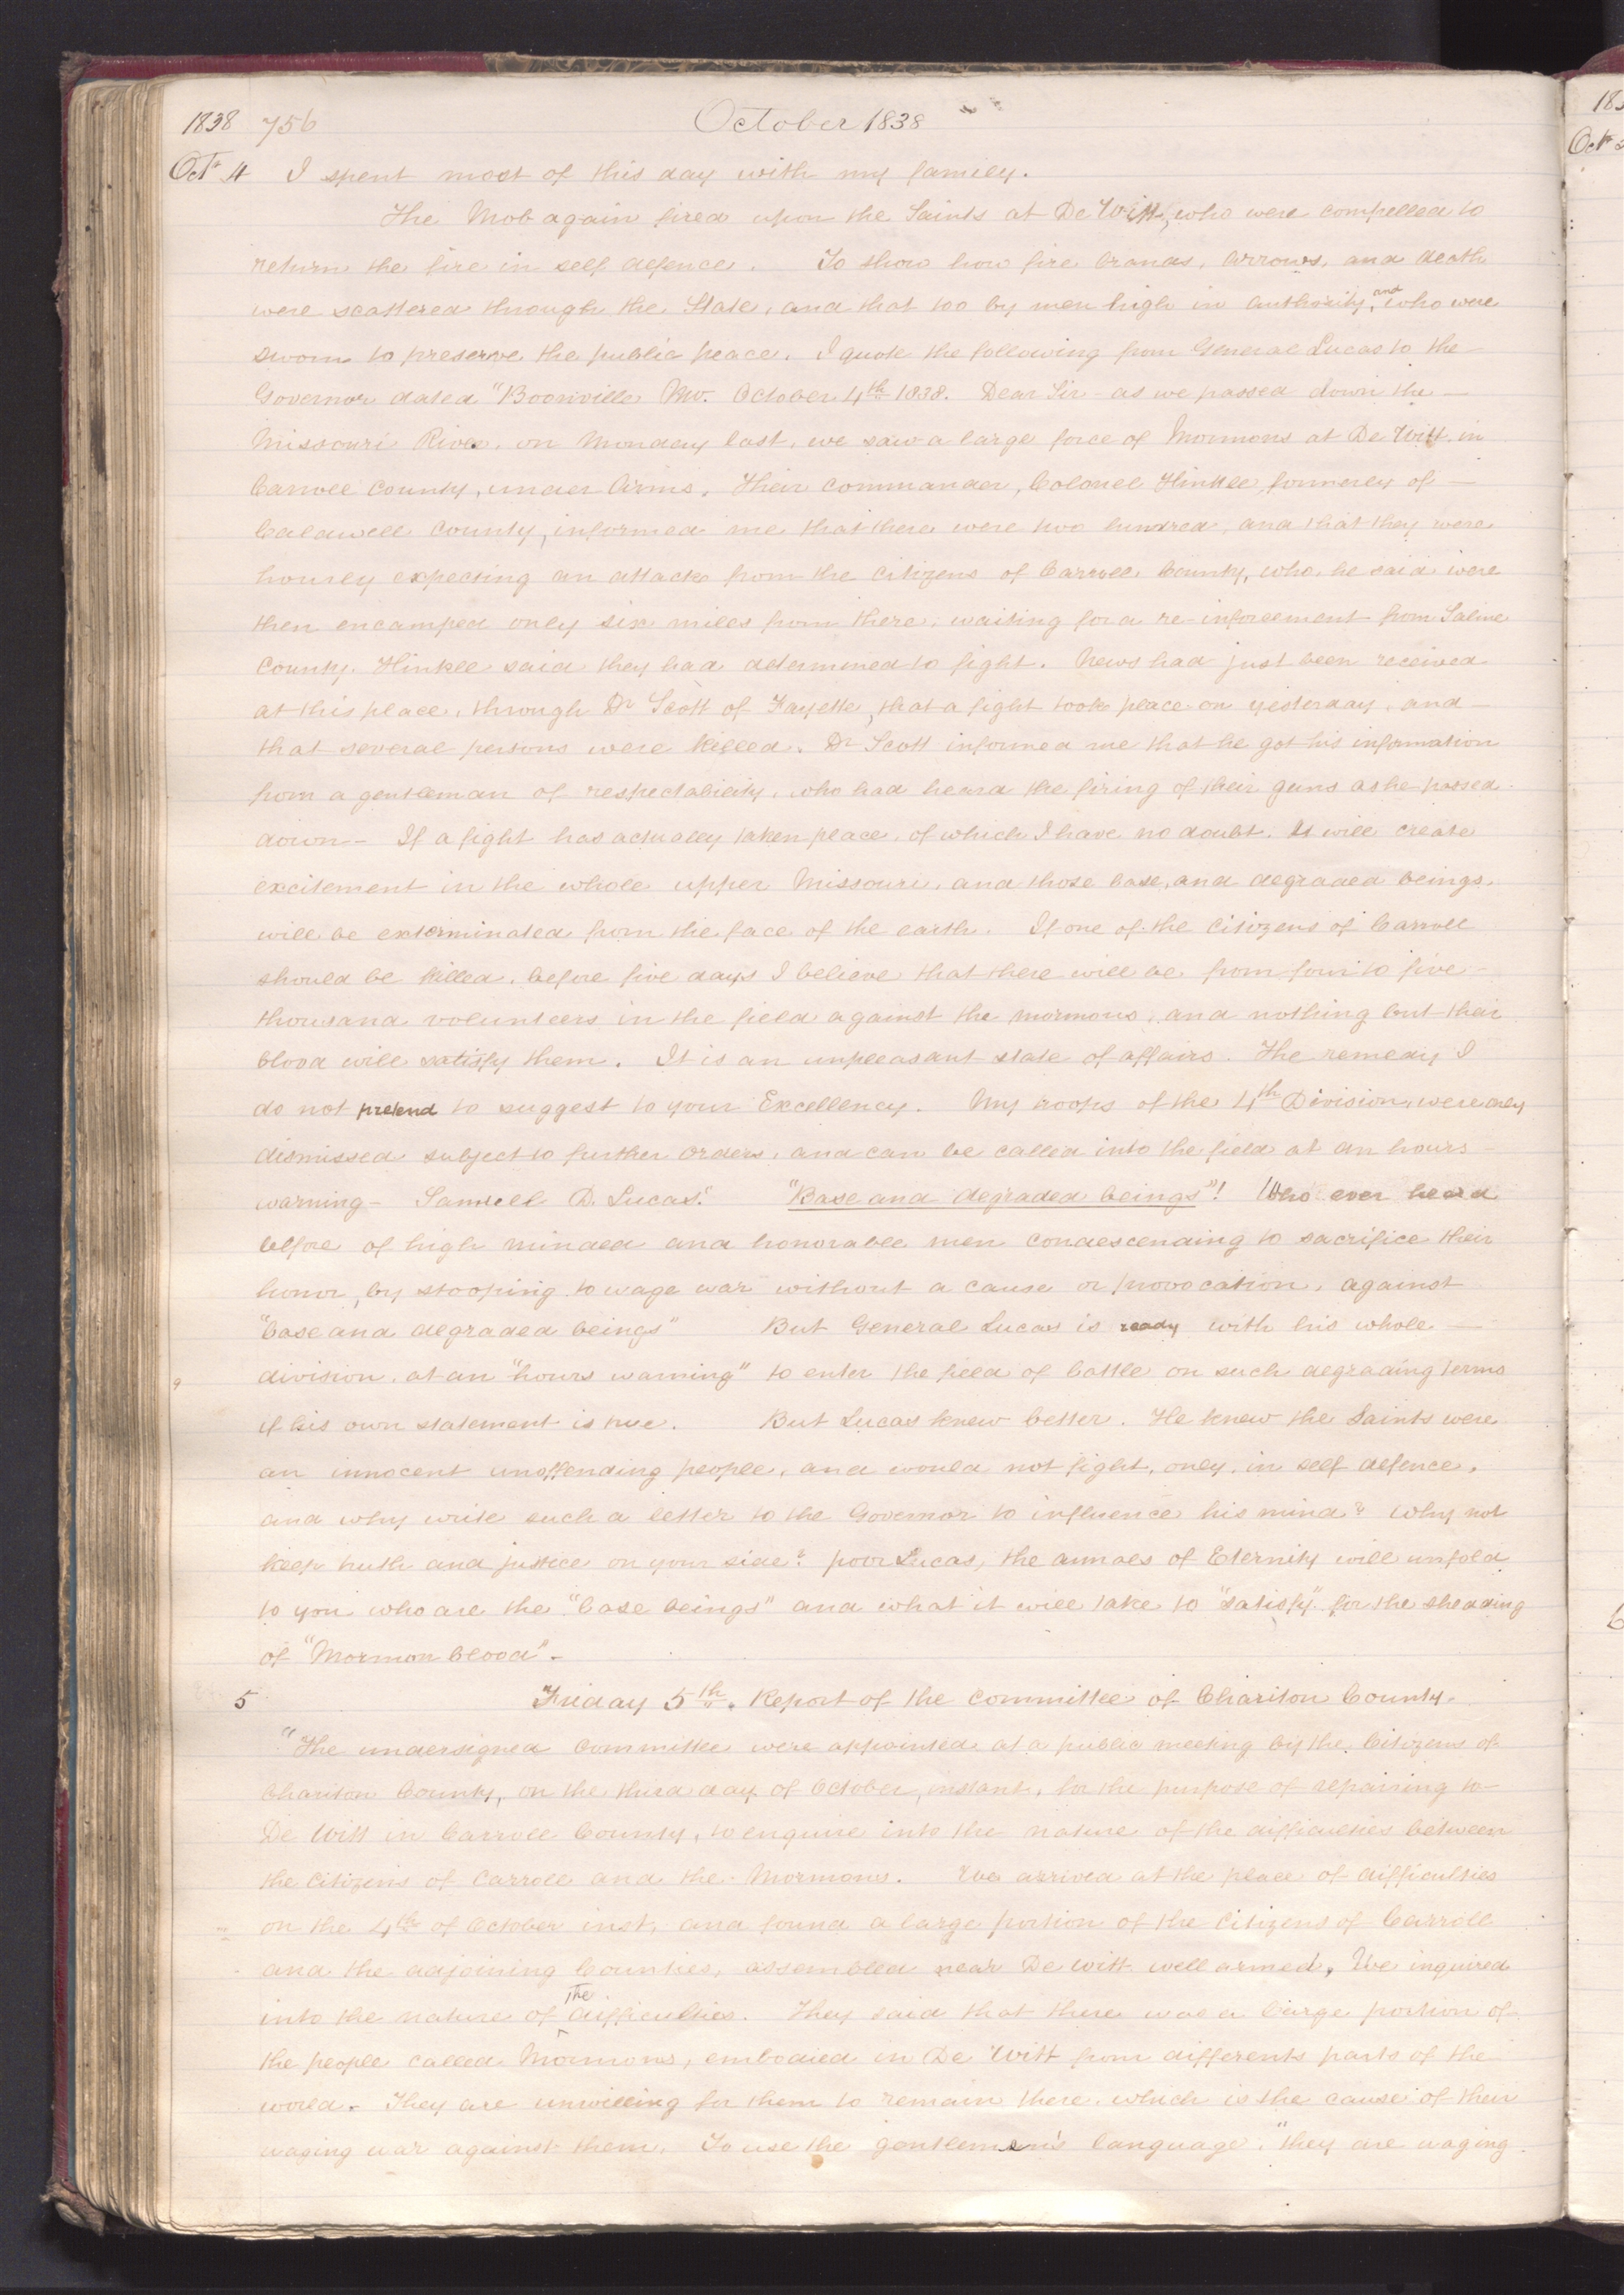 1838 756 October 1838
Oct. 4 I spent most of this day with my family.
The Mob again fired upon the Saints at De Witt, who were compelled to
return the fire in self defence. To show how fire brands, arrows, and death
were scattered through the State, and that too by men high in authority, and who were
sworn to preserve the public peace, I quote the following from General Lucas to the
Governor dated "Boonville Mo. October 4th 1838. Dear Sir - as we passed down the
Missouri River, on Monday last, we saw a large force of Mormons at De Witt in
Carroll County, under Arms. Their commander, Colonel Hinkle, formerly of
Caldwell County, informed me that there were two hundred, and that they were
hourly expecting an attack from the citizens of Carroll County, who, he said were
then encamped only six miles from there, waiting for a re-inforcement from Saline
County. Hinkle said they had determined to fight. News had just been received
at this place, through Dr Scott of Fayette, that a fight took place on yesterday, and
that several persons were killed. Dr Scott informed me that he got his information
from a gentleman of respectability, who had heard the firing of their guns as he passed
down - If a fight has actually taken place, of which I have no doubt, it will create
excitement in the whole upper Missouri, and those base, and degraded beings,
will be exterminated from the face of the earth. If one of the citizens of Carroll
should be killed, before five days I believe that there will be from four to five
thousand volunteers in the field against the mormons, and nothing but their
blood will satisfy them. It is an unpleasant state of affairs. The remedy I
do not pretend to suggest to your Excellency. My troops of the 4th Division, were only
dismissed subject to further orders, and can be called into the field at an hours
warning - Samuel D. Lucas." "Base and degraded beings"! Who ever heard
before of high minded and honorable men condescending to sacrifice their
honor, by stooping to wage war without a cause or provocation, against
"base and degraded beings" But General Lucas is ready with his whole
division, at an "hours warning" to enter the field of battle on such degrading terms
if his own statement is true. But Lucas knew better. He knew the Saints were
an innocent unoffending people, and would not fight, only, in self defence,
and why write such a letter to the Governor to influence his mind? Why not
keep truth and justice on your side? poor Lucas, the annals of Eternity will unfold
to you who are the "base beings" and what it will take to "satisfy" for the shedding
of "Mormon blood".
5 Friday 5th. Report of the committee of Chariton County.
"The undersigned committee were appointed at a public meeting by the Citizens of
Chariton County, on the third day of October, instant, for the purpose of repairing to
De Witt in Carroll County, to enquire into the nature of the difficulties between
the citizens of Carroll and the Mormons. We arrived at the place of difficulties
on the 4th of October inst, and found a large portion of the citizens of Carroll
and the adjoining Counties, assembled near De Witt well armed, We inquired
into the nature of The difficulties. They said that there was a large portion of
the people called Mormons, embodied in De Witt from differents parts of the
world. They are unwilling for them to remain there, which is the cause of their
waging war against them. To use the gentlemen's language, "they are waging
183
Oct